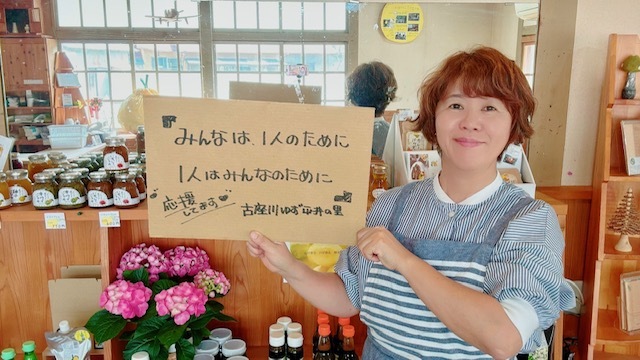 みんなは、1人のために
1人はみんなのために
応援
してます
古座川ゆず平井の里